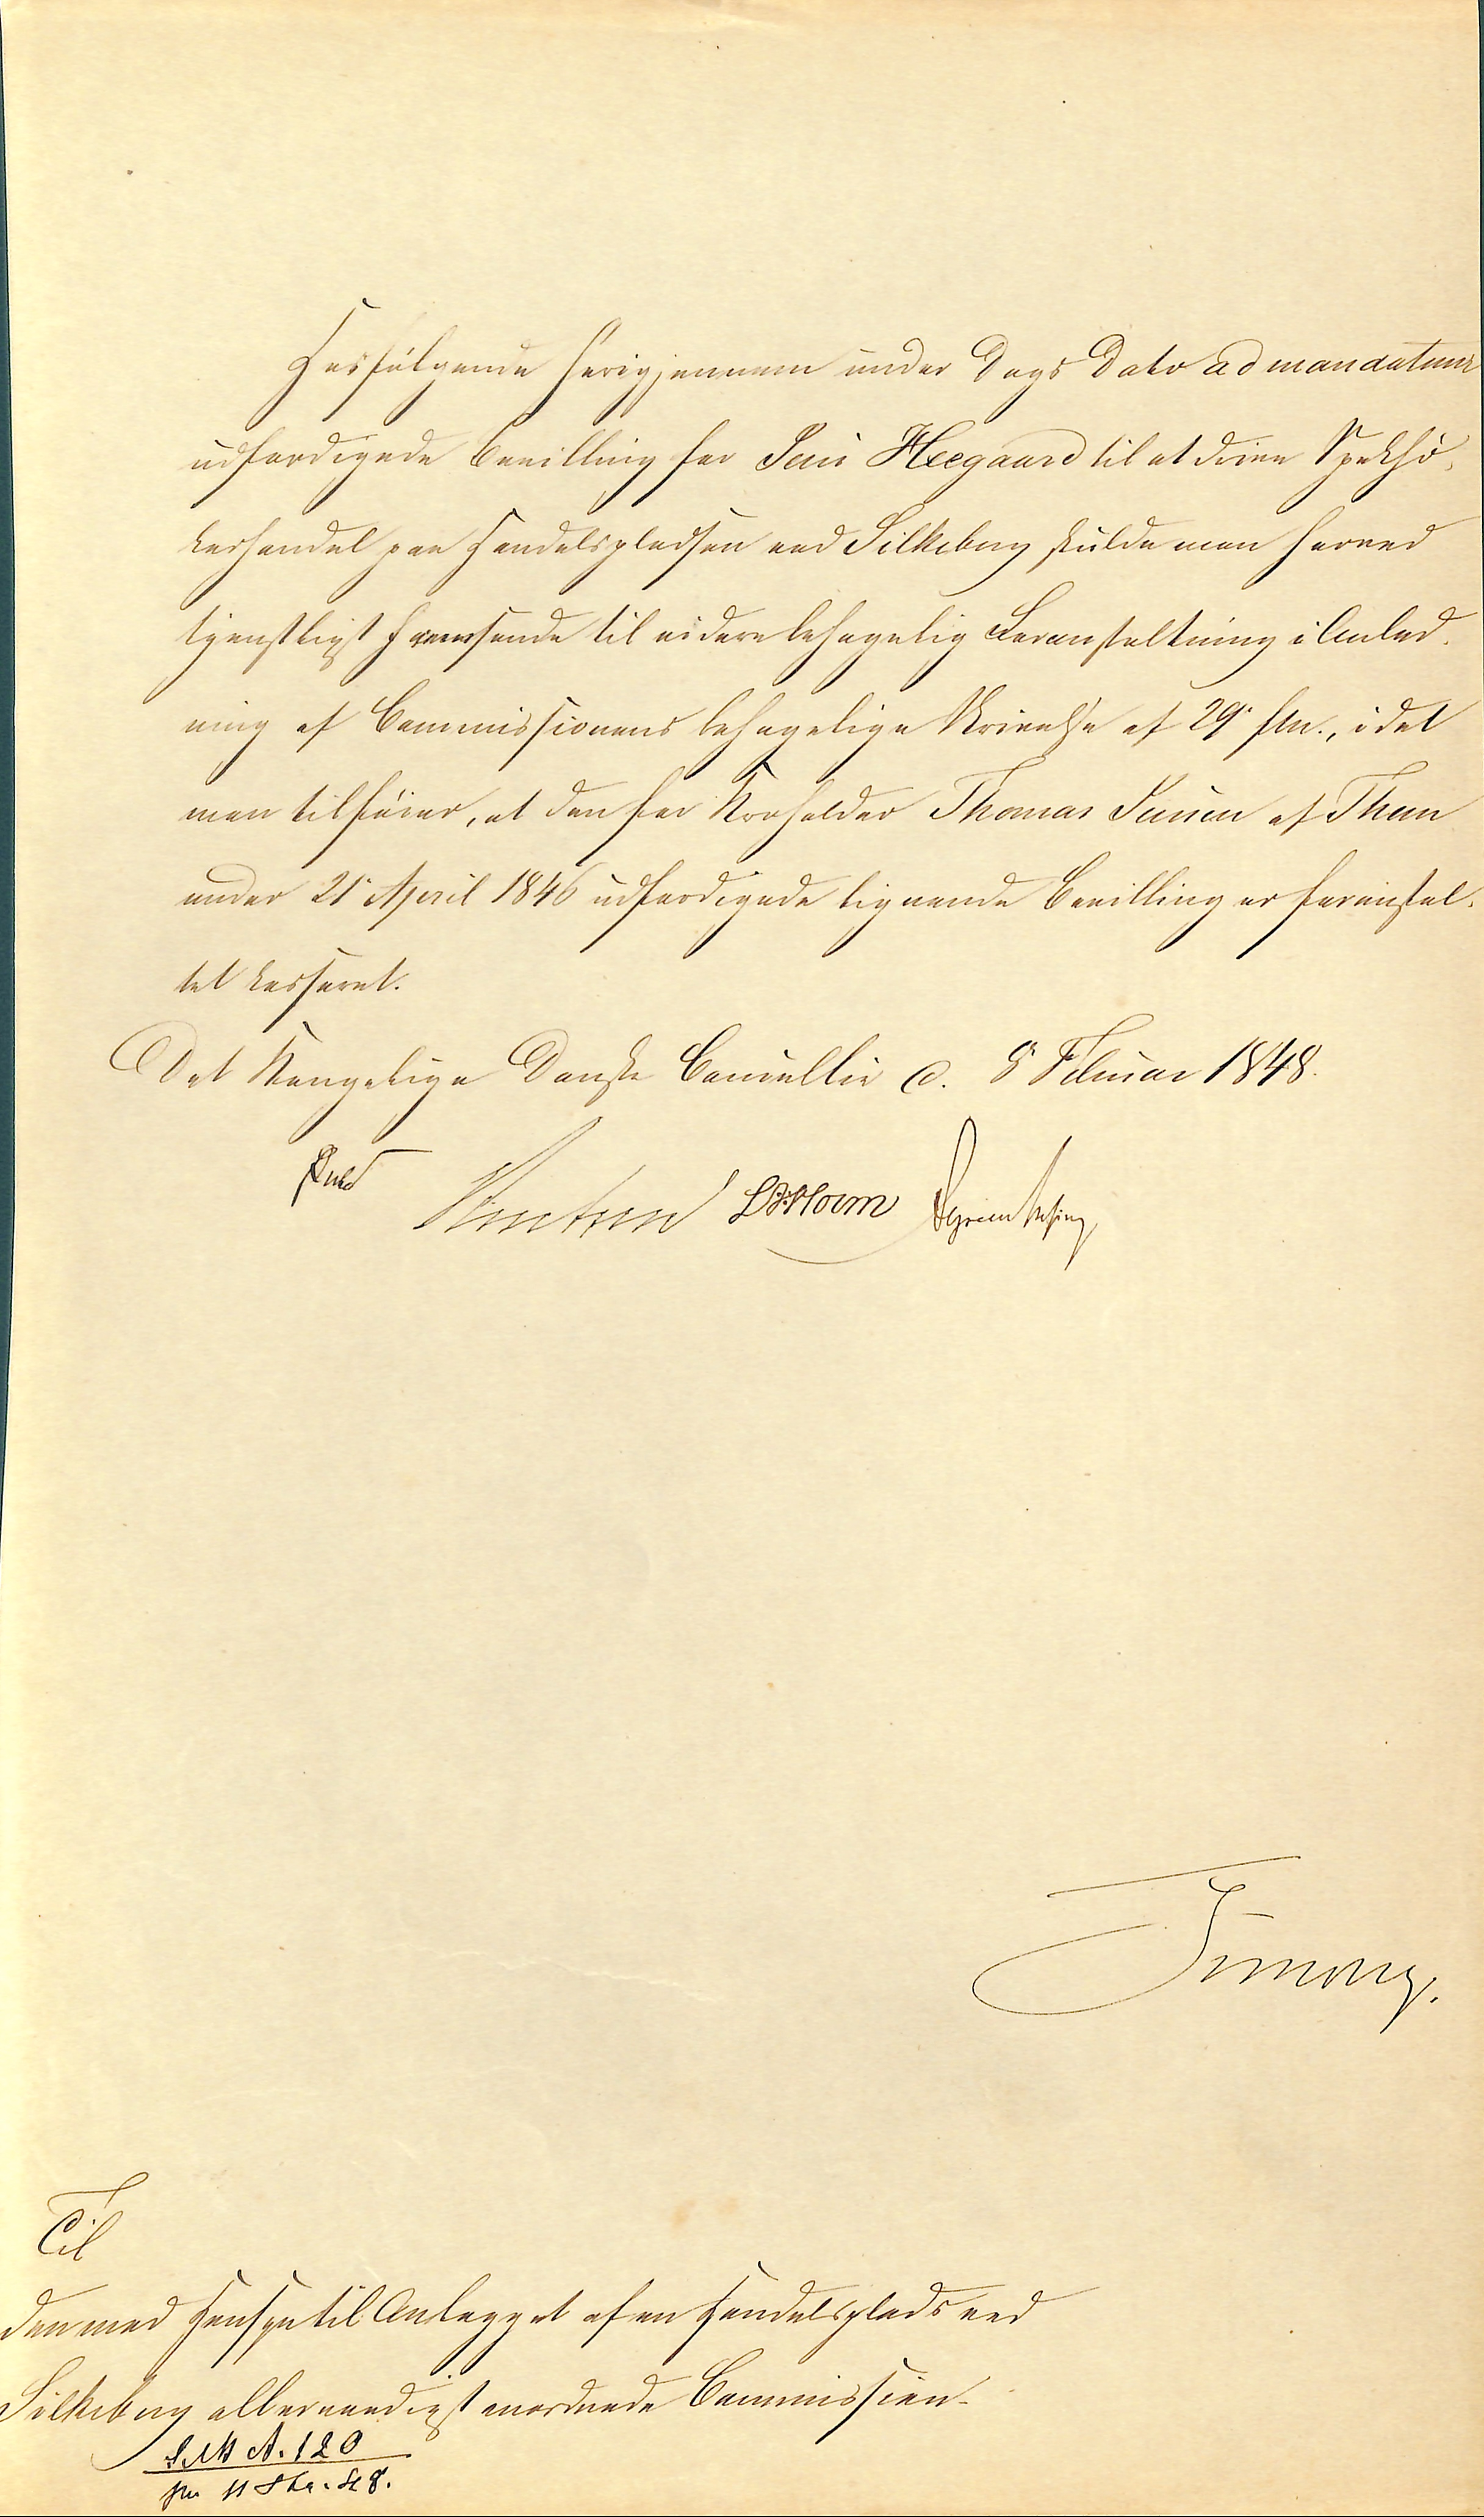 Hosfølgende herigjennem under Dags Dato ad mandatum
udfærdigede Bevilling for Jens Heegaard til at drive Spekhø-
kerhandel paa Handelspladsen ved Silkeborg skulde man herved
tjenstligst fremsende til videre behagelig Foranstaltning i Anled-
ning af Commissionens behagelige Skrivelse af 29 f.M., idet
man tilføier, at den for Kroholder Thomas Jensen af Them
under 21 April 1846 udfærdigede lignende Bevilling er foranstal-
tet kasseret.
Det Kongelige Danske Cancellie d. 8 Februar 1848.
Til
den med Hensyn til Anlægget af en Handelsplads ved
Silkeborg allernaadigst anordnede Commission.
A. 120